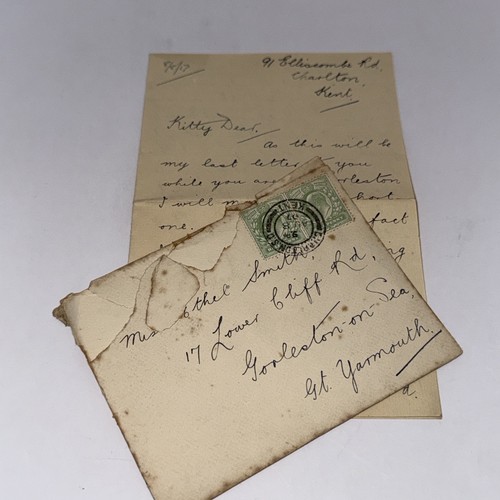 91 Elliscombe Rd,
Charlton,
Kent.
Kitty Dear,
As this will be
my last letter you
while you are
I will
one. fact
Ethel Smith,
17 Lower Cliff Rd,
Gorleston-on-Sea,
Gt. Yarmouth.